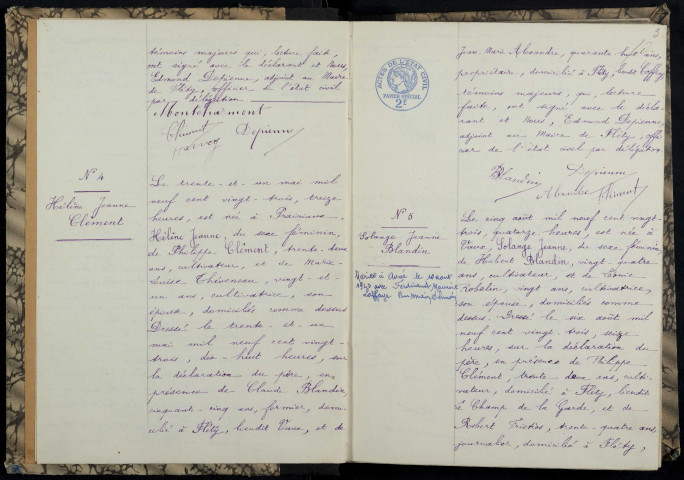 témoins majeurs qui, lecture faite,
ont signé avec le déclarant et Nous,
Edmond Depienne, adjoint au Maire
de Fléty, officier de l'état civil
par délégation
Montcharmont
Clément Depienne
N° 4
Hélène Jeanne
Clément
Le trente-et-un mai mil
neuf cent vingt-trois, treize
heures, est née à
Hélène Jeanne, du sexe féminin,
de Philippe Clément, trente-deux
ans, cultivateur, et de Marie-
Louise Théveneau, vingt-et-
un ans, cultivatrice, son
épouse, domiciliés comme dessus
Dressé le trente-et-un
mai mil neuf cent vingt-
trois, dix-huit heures, sur
la déclaration du père, en
présence de Claude Blandin,
cinquante-cinq ans, fermier, domi-
cilié à Fléty, lieudit Vaux, et de
3
Jean-Marie Alexandre, quarante huit ans,
propriétaire, domicilié à Fléty, lieudit
témoins majeurs, qui, lecture
faite, ont signé avec le décla-
rant et Nous, Edmond Depienne,
adjoint au Maire de Fléty, offi-
cier de l'état civil par délégation.
ACTES DE L'ÉTAT CIVIL
PAPIER SPÉCIAL
2F
Blandin Depienne
Alexandre Clément
N° 5
Solange Jeanne
Blandin
Mariée à le 10 août
1943 avec Ferdinand Maurice
Le cinq août mil neuf cent vingt-
trois, quatorze heures, est née à
Vaux, Solange Jeanne, du sexe féminin,
de Hubert Blandin, vingt quatre
ans, cultivateur, et de Léonie
Robelin, vingt ans, cultivatrice,
son épouse, domiciliés comme
dessus. Dressé le six août mil
neuf cent vingt-trois, seize
heures, sur la déclaration du
père, en présence de Philippe
Clément, trente deux ans, culti-
vateur, domicilié à Fléty, lieudit
le Champ de la Garde, et de
Robert, trente-quatre ans,
journalier, domicilié à Fléty,